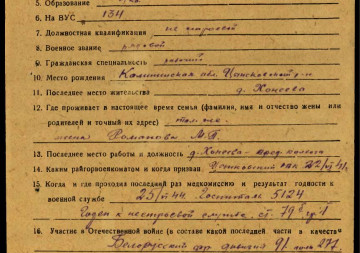 5. Образование
6. На ВУС 134
7. Должностная квалификация не строевой
8. Военное звание рядовой
9. Гражданская специальность
10. Место рождения Калининская обл.
11. Последнее место жительства д. Конеево
12. Где проживает в настоящее время семья (фамилия, имя и отчество жены или
родителей и точный их адрес) там же
жена Романова М. П.
13. Последнее место работы и должность д. Конеево
14. Каким райгорвоенкоматом и когда призван
15. Когда и где проходил последний раз медкомиссию и результат годности к
военной службе 25/VI 44. Госпиталь 5124
Годен к нестроевой службе, ст. 79
16. Участие в Отечественной войне (в составе какой последней части в качестве
Белорусский фр. дивизия 91 полк 277.